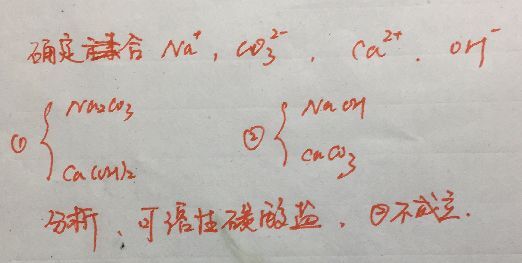 确定组合 Na⁺, CO₃²⁻, Ca²⁺, OH⁻
① { Na₂CO₃
Ca(OH)₂
② { NaOH
CaCO₃
分析、可溶性碳酸盐、②不成立.